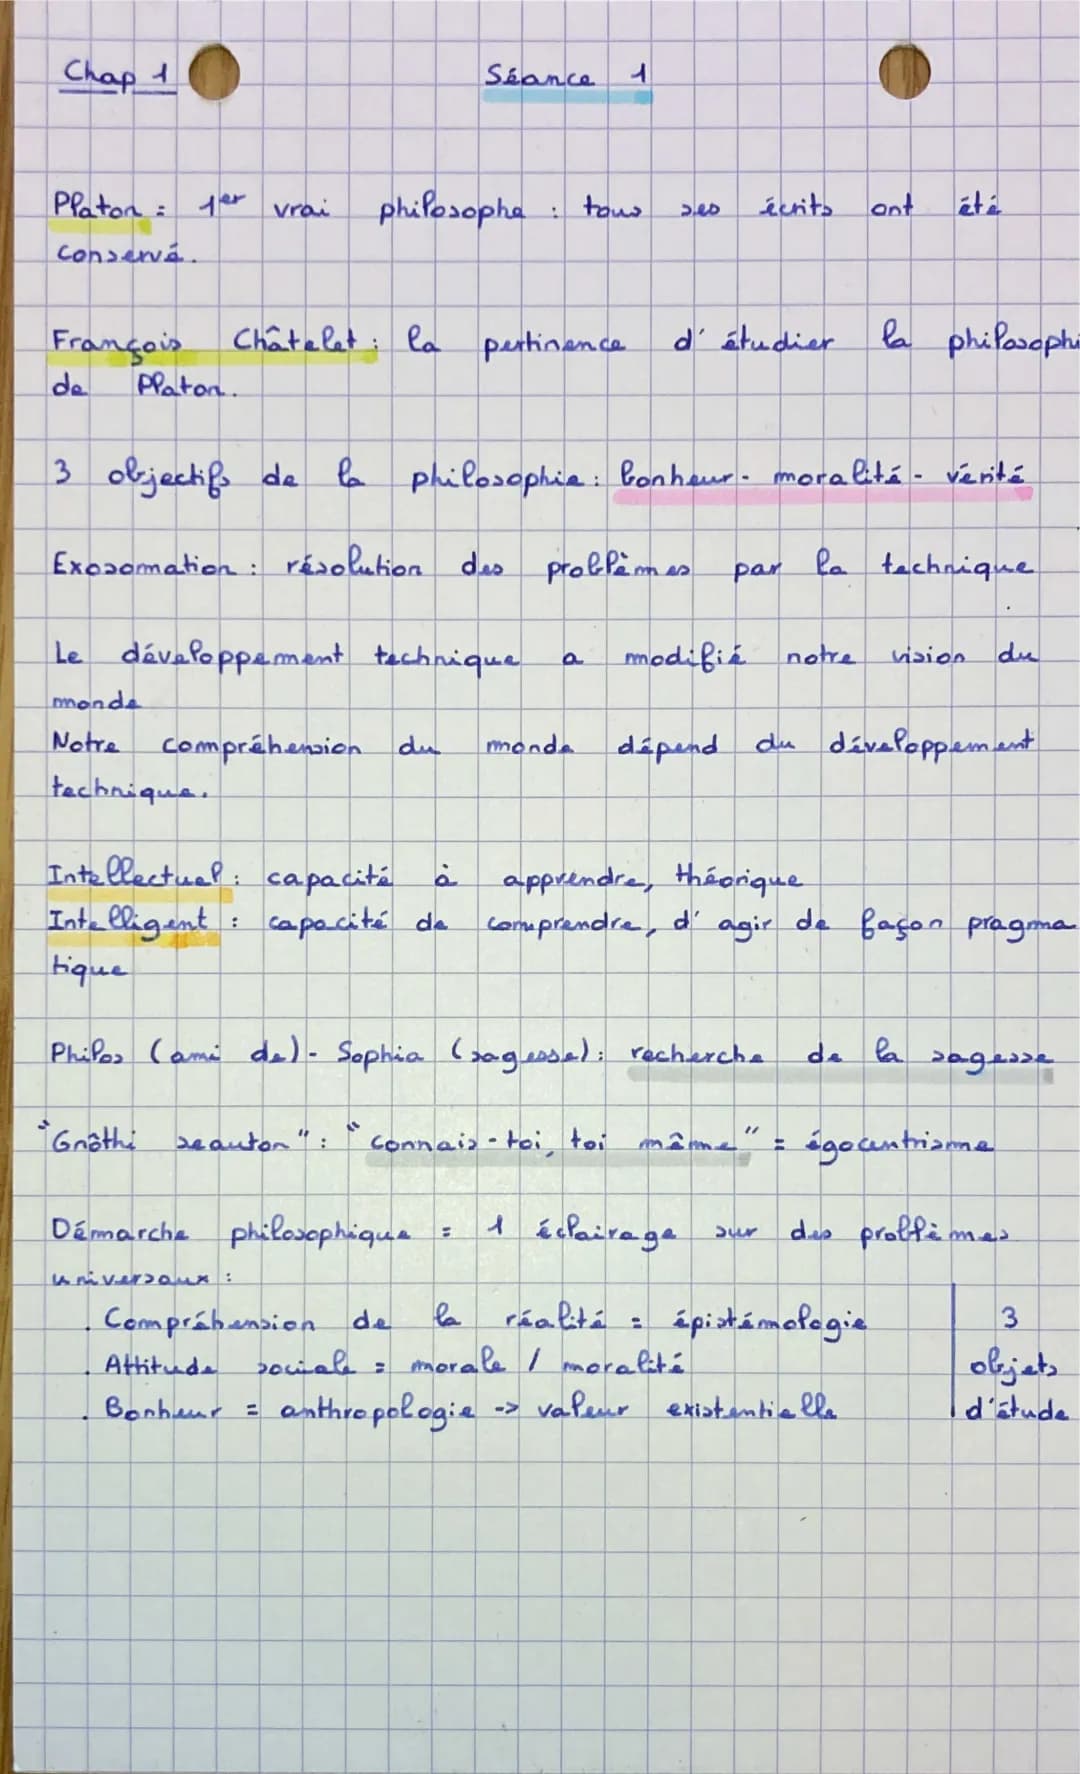 Chap 1
Séance 1
Platon : 1er vrai philosophe : tous ses écrits ont été
conservé.
François Châtelet : la pertinence d'étudier la philosophi
de Platon.
3 objectifs de la philosophie : bonheur - moralité - vérité
Exosomation : résolution des problèmes par la technique
Le développement technique a modifié notre vision du
monde
Notre compréhension du monde dépend du développement
technique.
Intellectuel : capacité à apprendre, théorique
Intelligent : capacité de comprendre, d'agir de façon pragma
tique
Philos (ami de) - Sophia (sagesse) : recherche de la sagesse
"Gnôthi seauton" : "connais-toi, toi même" = égocentrisme
Démarche philosophique = 1 éclairage sur des problèmes
universaux :
. Compréhension de la réalité = épistémologie
. Attitude sociale = morale / moralité
. Bonheur = anthropologie -> valeur existentielle
3
objets
d'étude